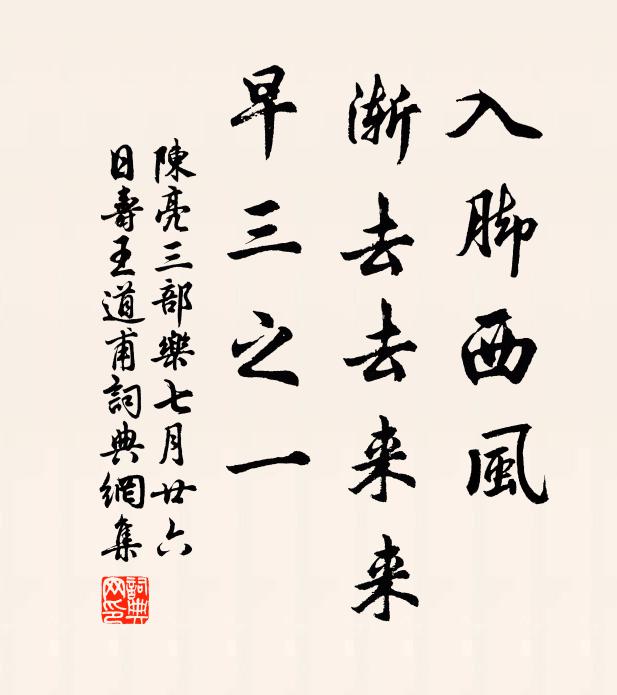 入脚西風
漸去去来来
早三之一
陳亮三部樂七月廿六
日壽王道甫詞典網集
詞典
网印